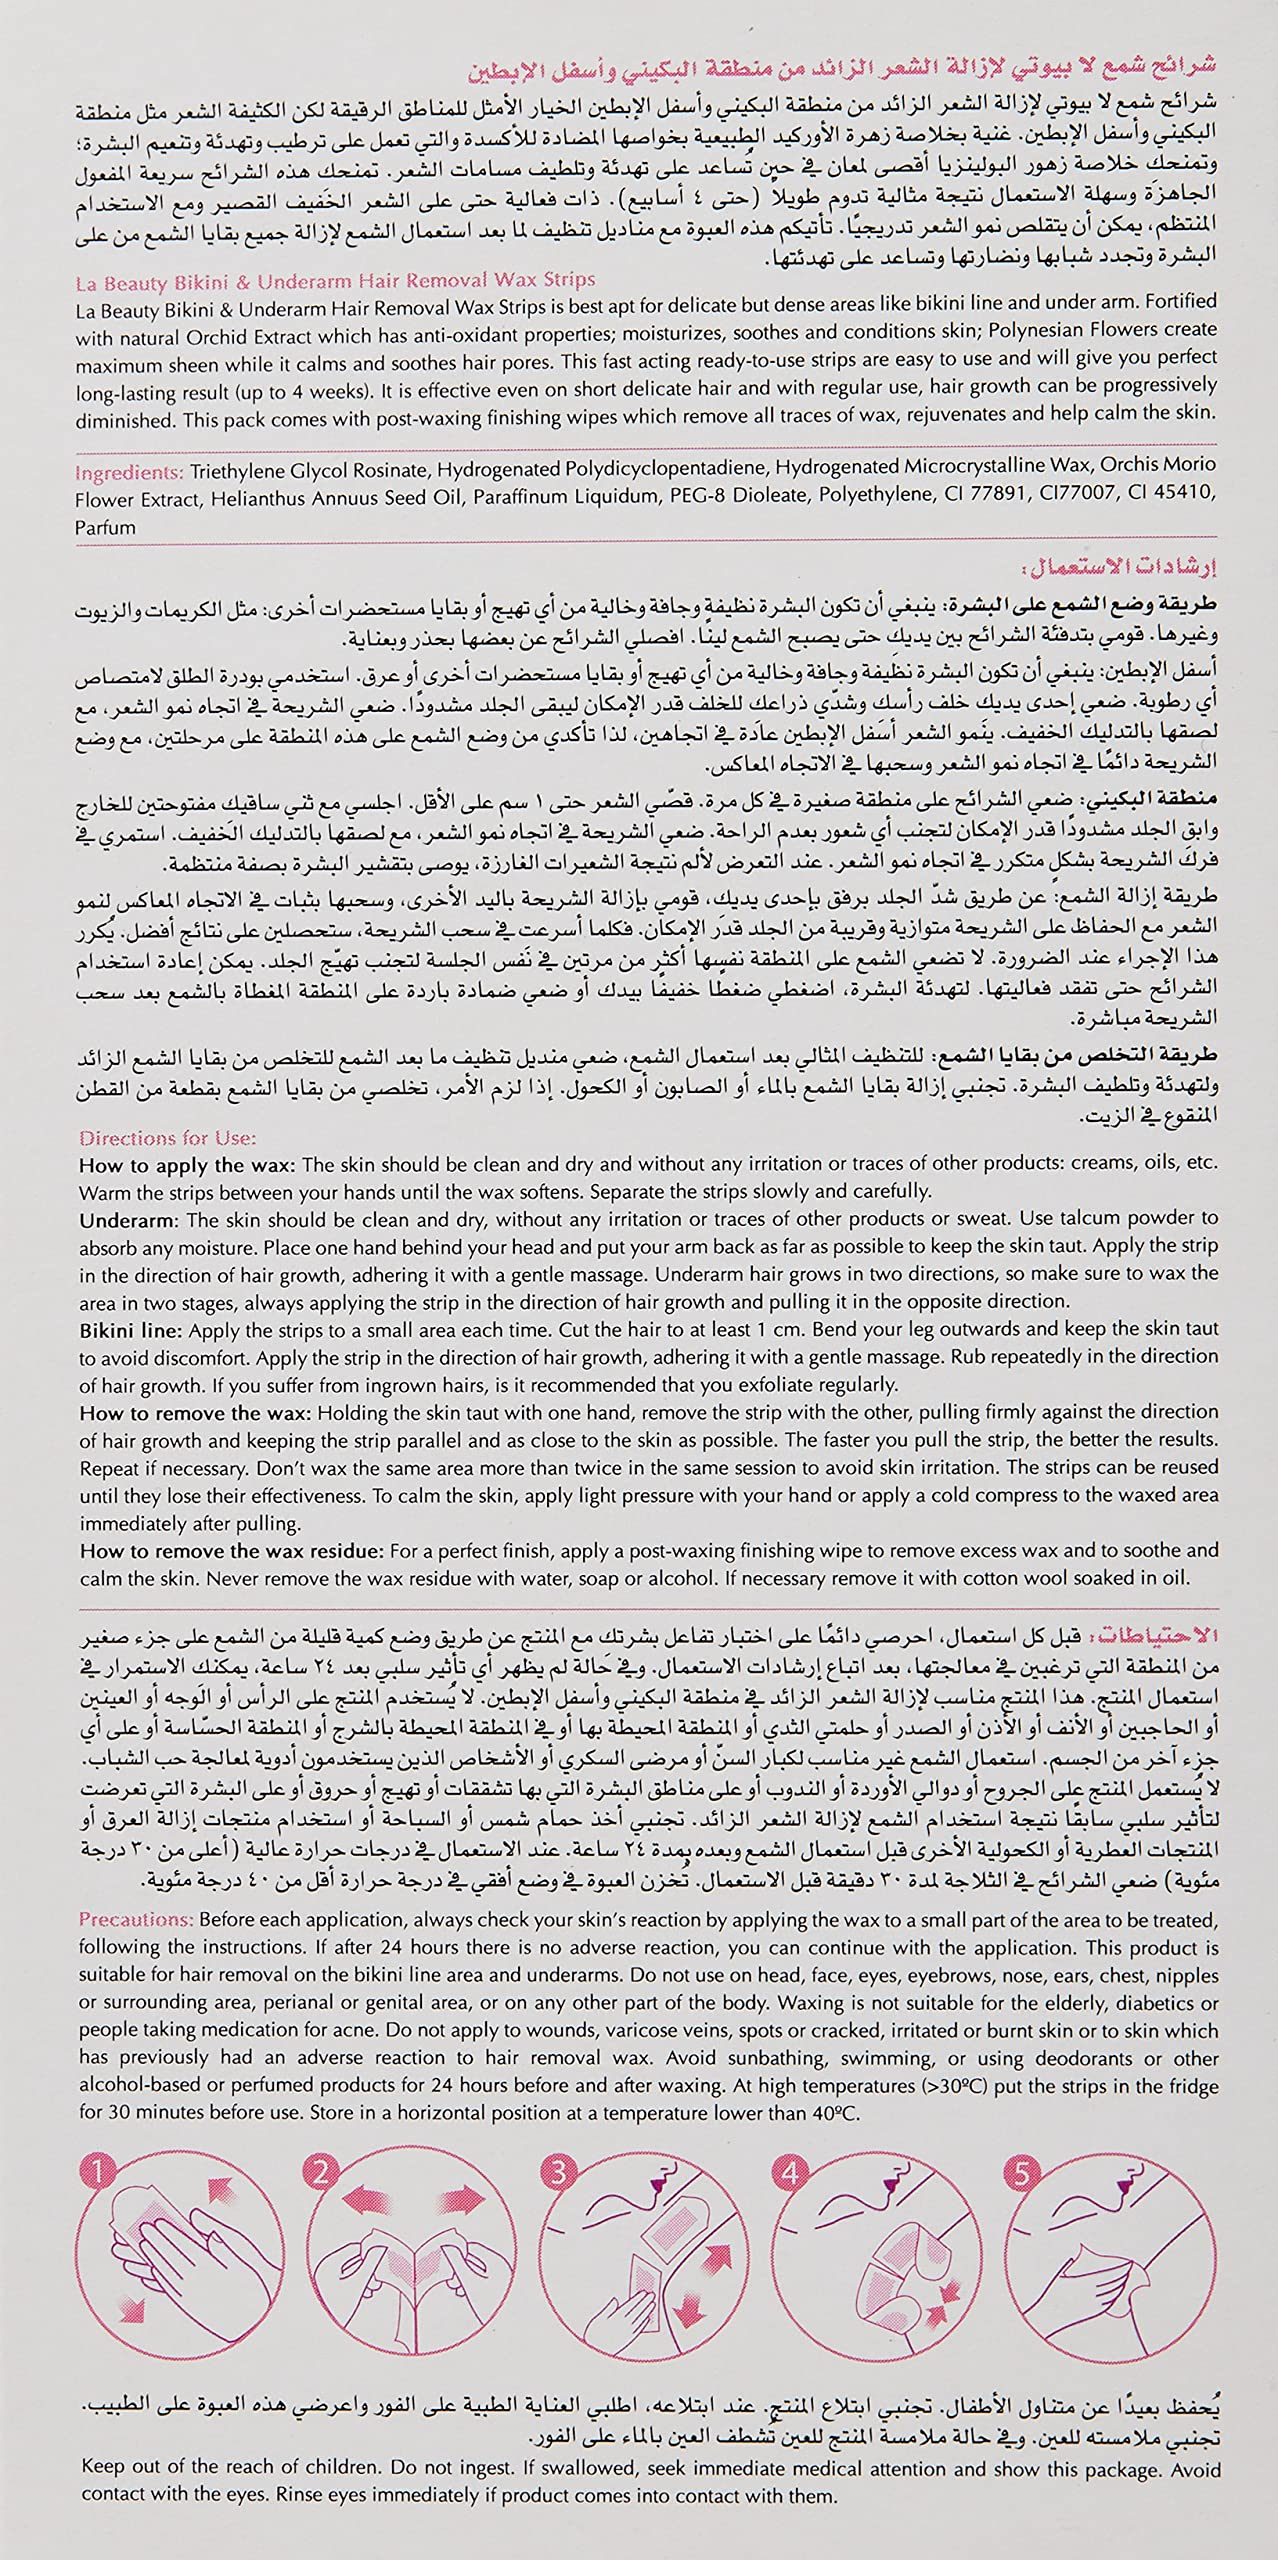 شرائح شمع لا بيوتي لإزالة الشعر الزائد من منطقة البكيني وأسفل الإبطين
شرائح شمع لا بيوتي لإزالة الشعر الزائد من منطقة البكيني وأسفل الإبطين الخيار الأمثل للمناطق الرقيقة لكن الكثيفة الشعر مثل منطقة
البكيني وأسفل الإبطين. غنية بخلاصة زهرة الأوركيد الطبيعية بخواصها المضادة للأكسدة والتي تعمل على ترطيب وتهدئة وتنعيم البشرة؛
وتمنحك خلاصة زهور البولينزيا أقصى لمعان في حين تُساعد على تهدئة وتلطيف مسامات الشعر. تمنحك هذه الشرائح سريعة المفعول
الجاهزة وسهلة الاستعمال نتيجة مثالية تدوم طويلاً (حتى ٤ أسابيع). ذات فعالية حتى على الشعر الخفيف القصير ومع الاستخدام
المنتظم، يمكن أن يتقلص نمو الشعر تدريجيًا. تأتيكم هذه العبوة مع مناديل تنظيف لما بعد استعمال الشمع لإزالة جميع بقايا الشمع من على
البشرة وتجدد شبابها ونضارتها وتساعد على تهدئتها.
La Beauty Bikini & Underarm Hair Removal Wax Strips
La Beauty Bikini & Underarm Hair Removal Wax Strips is best apt for delicate but dense areas like bikini line and under arm. Fortified
with natural Orchid Extract which has anti-oxidant properties; moisturizes, soothes and conditions skin; Polynesian Flowers create
maximum sheen while it calms and soothes hair pores. This fast acting ready-to-use strips are easy to use and will give you perfect
long-lasting result (up to 4 weeks). It is effective even on short delicate hair and with regular use, hair growth can be progressively
diminished. This pack comes with post-waxing finishing wipes which remove all traces of wax, rejuvenates and help calm the skin.
Ingredients: Triethylene Glycol Rosinate, Hydrogenated Polydicyclopentadiene, Hydrogenated Microcrystalline Wax, Orchis Morio
Flower Extract, Helianthus Annuus Seed Oil, Paraffinum Liquidum, PEG-8 Dioleate, Polyethylene, CI 77891, CI77007, CI 45410,
Parfum
إرشادات الاستعمال:
طريقة وضع الشمع على البشرة: ينبغي أن تكون البشرة نظيفة وجافة وخالية من أي تهيج أو بقايا مستحضرات أخرى: مثل الكريمات والزيوت
وغيرها. قومي بتدفئة الشرائح بين يديك حتى يصبح الشمع لينًا. افصلي الشرائح عن بعضها بحذر وبعناية.
أسفل الإبطين: ينبغي أن تكون البشرة نظيفة وجافة وخالية من أي تهيج أو بقايا مستحضرات أخرى أو عرق. استخدمي بودرة الطلق لامتصاص
أي رطوبة. ضعي إحدى يديك خلف رأسك وشدّي ذراعك للخلف قدر الإمكان ليبقى الجلد مشدودًا. ضعي الشريحة في اتجاه نمو الشعر، مع
لصقها بالتدليك الخفيف. ينمو الشعر أسفل الإبطين عادة في اتجاهين، لذا تأكدي من وضع الشمع على هذه المنطقة على مرحلتين، مع وضع
الشريحة دائمًا في اتجاه نمو الشعر وسحبها في الاتجاه المعاكس.
منطقة البكيني: ضعي الشرائح على منطقة صغيرة في كل مرة. قصّي الشعر حتى ١ سم على الأقل. اجلسي مع ثني ساقيك مفتوحتين للخارج
وابق الجلد مشدودًا قدر الإمكان لتجنب أي شعور بعدم الراحة. ضعي الشريحة في اتجاه نمو الشعر، مع لصقها بالتدليك الخفيف. استمري في
فرك الشريحة بشكل متكرر في اتجاه نمو الشعر. عند التعرض لألم نتيجة الشعيرات الغارزة، يوصى بتقشير البشرة بصفة منتظمة.
طريقة إزالة الشمع: عن طريق شدّ الجلد برفق بإحدى يديك، قومي بإزالة الشريحة باليد الأخرى، وسحبها بثبات في الاتجاه المعاكس لنمو
الشعر مع الحفاظ على الشريحة متوازية وقريبة من الجلد قدر الإمكان. فكلما أسرعت في سحب الشريحة، ستحصلين على نتائج أفضل. يُكرر
هذا الإجراء عند الضرورة. لا تضعي الشمع على المنطقة نفسها أكثر من مرتين في نفس الجلسة لتجنب تهيّج الجلد. يمكن إعادة استخدام
الشرائح حتى تفقد فعاليتها. لتهدئة البشرة، اضغطي ضغطًا خفيفًا بيدك أو ضعي ضمادة باردة على المنطقة المغطاة بالشمع بعد سحب
الشريحة مباشرة.
طريقة التخلص من بقايا الشمع: للتنظيف المثالي بعد استعمال الشمع، ضعي منديل تنظيف ما بعد الشمع للتخلص من بقايا الشمع الزائد
ولتهدئة وتلطيف البشرة. تجنبي إزالة بقايا الشمع بالماء أو الصابون أو الكحول. إذا لزم الأمر، تخلصي من بقايا الشمع بقطعة من القطن
المنقوع في الزيت.
Directions for Use:
How to apply the wax: The skin should be clean and dry and without any irritation or traces of other products: creams, oils, etc.
Warm the strips between your hands until the wax softens. Separate the strips slowly and carefully.
Underarm: The skin should be clean and dry, without any irritation or traces of other products or sweat. Use talcum powder to
absorb any moisture. Place one hand behind your head and put your arm back as far as possible to keep the skin taut. Apply the strip
in the direction of hair growth, adhering it with a gentle massage. Underarm hair grows in two directions, so make sure to wax the
area in two stages, always applying the strip in the direction of hair growth and pulling it in the opposite direction.
Bikini line: Apply the strips to a small area each time. Cut the hair to at least 1 cm. Bend your leg outwards and keep the skin taut
to avoid discomfort. Apply the strip in the direction of hair growth, adhering it with a gentle massage. Rub repeatedly in the direction
of hair growth. If you suffer from ingrown hairs, is it recommended that you exfoliate regularly.
How to remove the wax: Holding the skin taut with one hand, remove the strip with the other, pulling firmly against the direction
of hair growth and keeping the strip parallel and as close to the skin as possible. The faster you pull the strip, the better the results.
Repeat if necessary. Don't wax the same area more than twice in the same session to avoid skin irritation. The strips can be reused
until they lose their effectiveness. To calm the skin, apply light pressure with your hand or apply a cold compress to the waxed area
immediately after pulling.
How to remove the wax residue: For a perfect finish, apply a post-waxing finishing wipe to remove excess wax and to soothe and
calm the skin. Never remove the wax residue with water, soap or alcohol. If necessary remove it with cotton wool soaked in oil.
الاحتياطات: قبل كل استعمال، احرصي دائمًا على اختبار تفاعل بشرتك مع المنتج عن طريق وضع كمية قليلة من الشمع على جزء صغير
من المنطقة التي ترغبين في معالجتها، بعد اتباع إرشادات الاستعمال. وفي حالة لم يظهر أي تأثير سلبي بعد ٢٤ ساعة، يمكنك الاستمرار في
استعمال المنتج. هذا المنتج مناسب لإزالة الشعر الزائد في منطقة البكيني وأسفل الإبطين. لا يُستخدم المنتج على الرأس أو الوجه أو العينين
أو الحاجبين أو الأنف أو الأذن أو الصدر أو حلمتي الثدي أو المنطقة المحيطة بها أو في المنطقة المحيطة بالشرج أو المنطقة الحسّاسة أو على أي
جزء آخر من الجسم. استعمال الشمع غير مناسب لكبار السنّ أو مرضى السكري أو الأشخاص الذين يستخدمون أدوية لمعالجة حب الشباب.
لا يُستعمل المنتج على الجروح أو دوالي الأوردة أو الندوب أو على مناطق البشرة التي بها تشققات أو تهيج أو حروق أو على البشرة التي تعرضت
لتأثير سلبي سابقًا نتيجة استخدام الشمع لإزالة الشعر الزائد. تجنبي أخذ حمام شمس أو السباحة أو استخدام منتجات إزالة العرق أو
المنتجات العطرية أو الكحولية الأخرى قبل استعمال الشمع وبعده بمدة ٢٤ ساعة. عند الاستعمال في درجات حرارة عالية (أعلى من ٣٠ درجة
مئوية) ضعي الشرائح في الثلاجة لمدة ٣٠ دقيقة قبل الاستعمال. تُخزن العبوة في وضع أفقي في درجة حرارة أقل من ٤٠ درجة مئوية.
Precautions: Before each application, always check your skin's reaction by applying the wax to a small part of the area to be treated,
following the instructions. If after 24 hours there is no adverse reaction, you can continue with the application. This product is
suitable for hair removal on the bikini line area and underarms. Do not use on head, face, eyes, eyebrows, nose, ears, chest, nipples
or surrounding area, perianal or genital area, or on any other part of the body. Waxing is not suitable for the elderly, diabetics or
people taking medication for acne. Do not apply to wounds, varicose veins, spots or cracked, irritated or burnt skin or to skin which
has previously had an adverse reaction to hair removal wax. Avoid sunbathing, swimming, or using deodorants or other
alcohol-based or perfumed products for 24 hours before and after waxing. At high temperatures (>30ºC) put the strips in the fridge
for 30 minutes before use. Store in a horizontal position at a temperature lower than 40ºC.
1 2 3 4 5
يُحفظ بعيدًا عن متناول الأطفال. تجنبي ابتلاع المنتج. عند ابتلاعه، اطلبي العناية الطبية على الفور واعرضي هذه العبوة على الطبيب.
تجنبي ملامسته للعين. وفي حالة ملامسة المنتج للعين تُشطف العين بالماء على الفور.
Keep out of the reach of children. Do not ingest. If swallowed, seek immediate medical attention and show this package. Avoid
contact with the eyes. Rinse eyes immediately if product comes into contact with them.